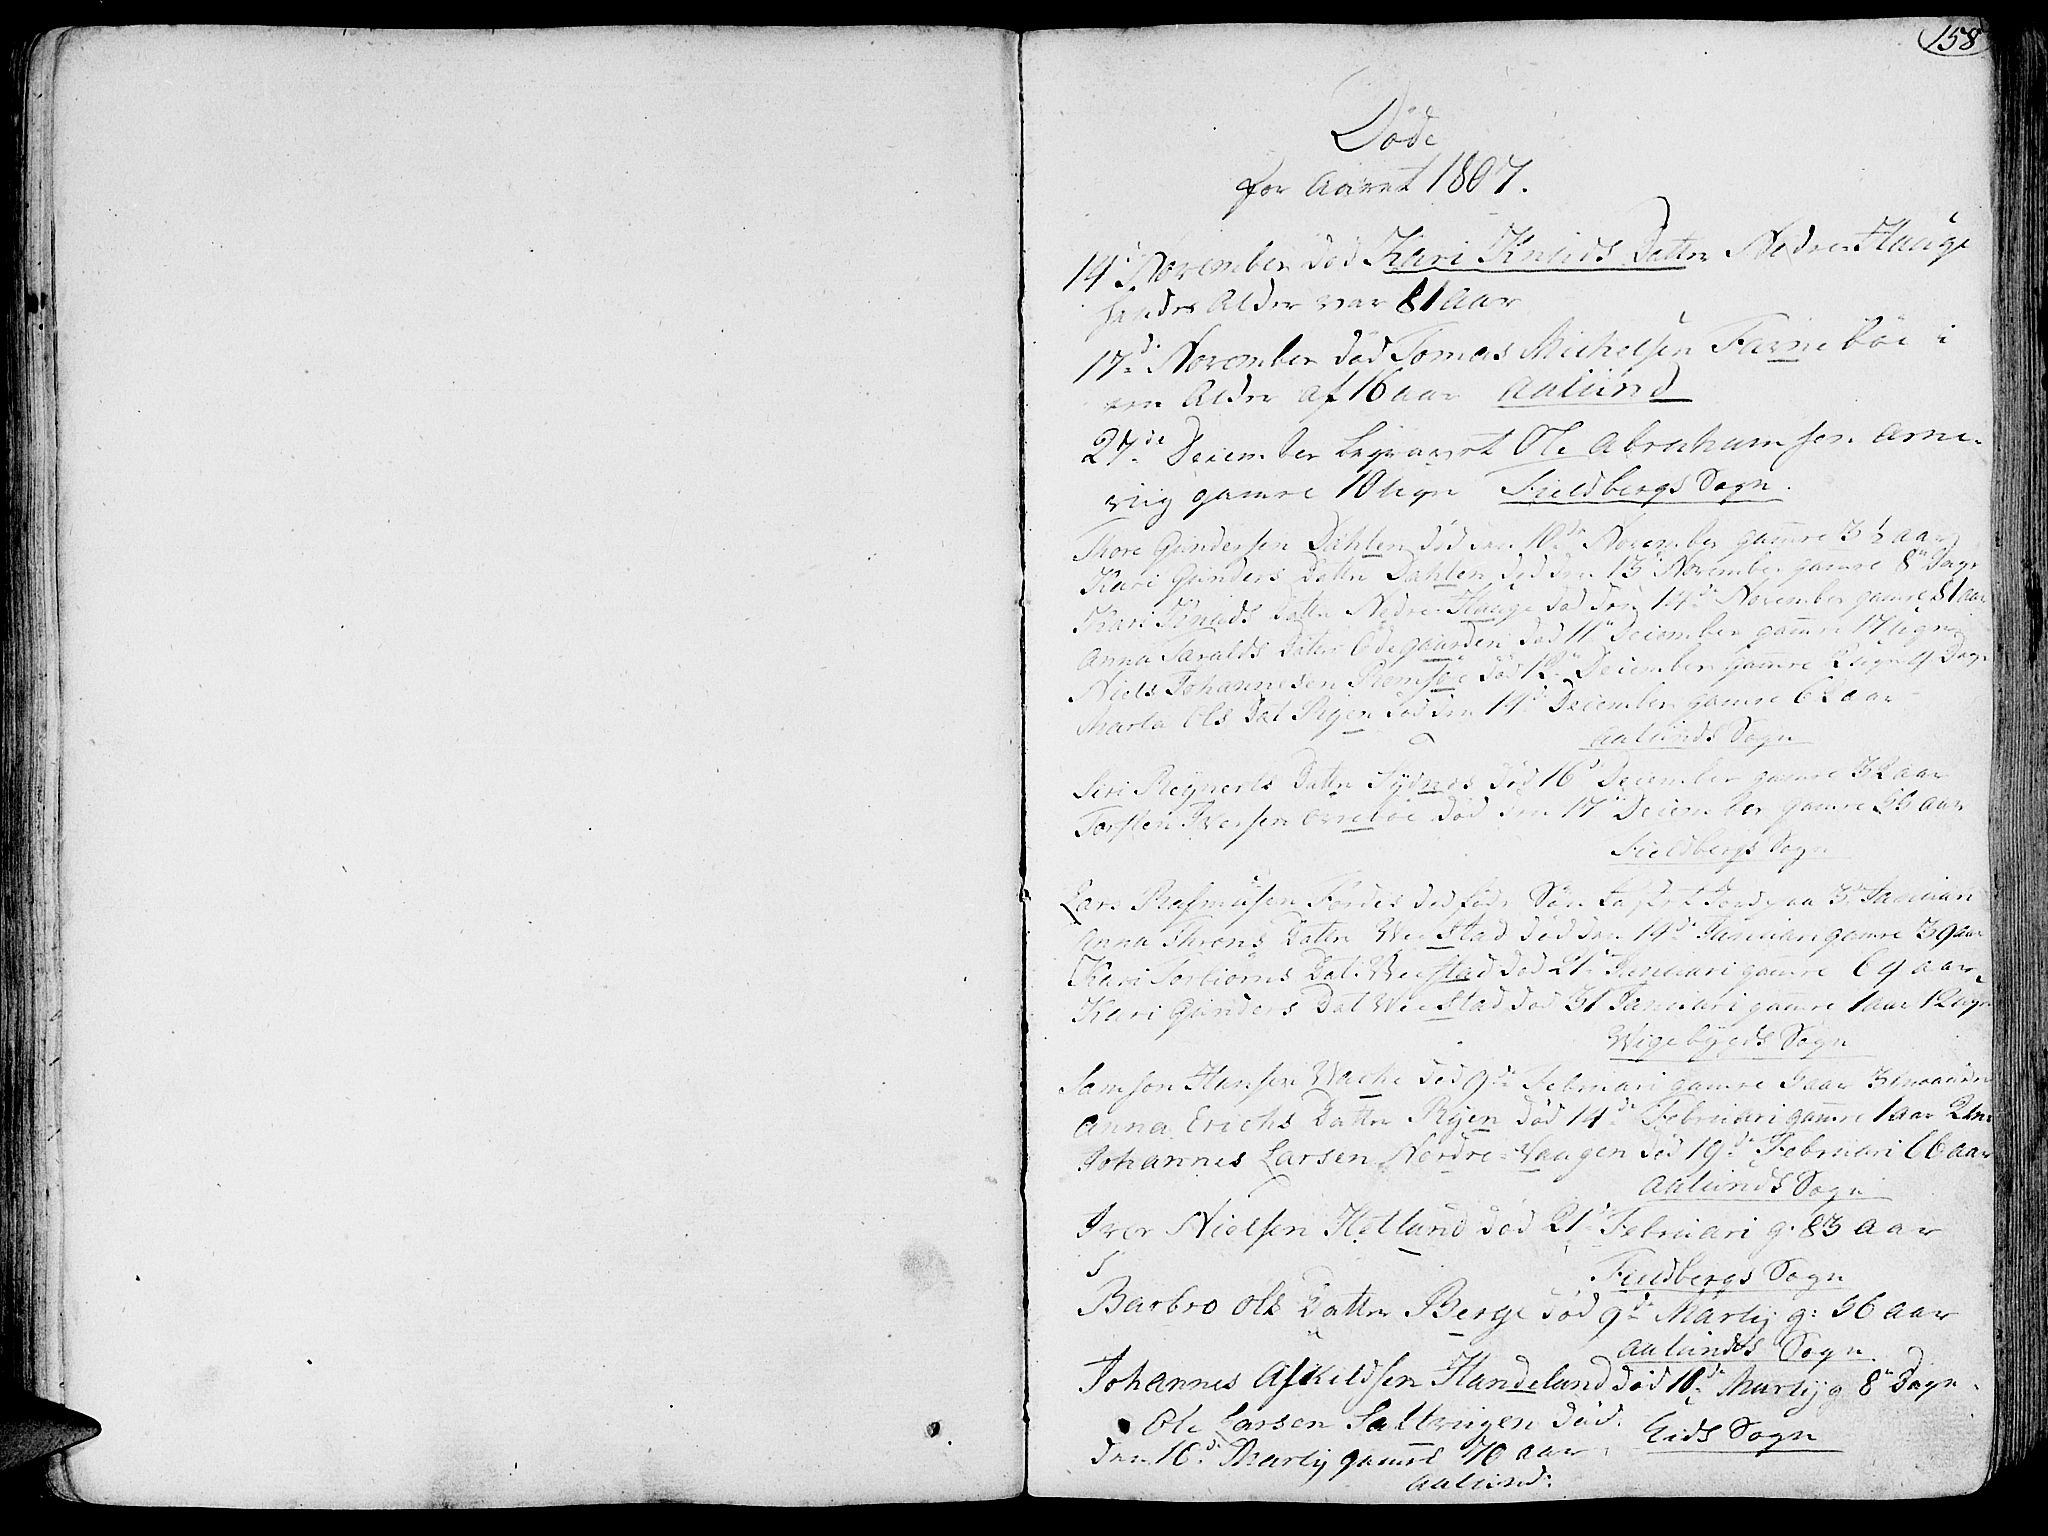 158
Døde
for Aaret 1807.
14d November død Kari Knuds Datter Nedre Hauge
hendes Alder var 81 Aar
17d November død Tomas Michelsen Farnebøe i
en Alder af 16 aar Aalund
27de December begravet Ole Abrahamsen Arne-
viig gamle 10 ugr Fieldbergs Sogn.
Thore Gundersen Dahlen død den 10de November gamle 3½ aar
Kari Gunders Datter Dahlen død den 13d November gamle 8 Dage
Kari Knuds Datter Nedre Hauge død den 14de November gamle 81 aar
Anna Taralds Datter Ødegaarden død 11 December gamle 17 ugr
Niels Johannesen død 12 December gamle 2 ugr 4 Dage
Marta Ols Dat Ryen død den 14d December gamle 62 aar
Aalunds Sogn
Siri Reynerts Datter Sydnes død 16d December gamle 32 aar
Torsten Iversen død den 17 December gamle 26 aar
Fieldbergs Sogn
Lars Rasmusen Fordes død Søn 3d Januari
Anna Datter Weestad død den 14d Januari gamle 39 aar
Kari Torbiorns Dat: Weestad død 21d Januari gamle 69 aar
Kari Gunders Dat Weestad død 31 Januari gamle 1 aar 12 ugr
Wigebygds Sogn
Samson Hansen Wache død 9de Februari gamle 5 aar 3 maaneder
Anna Erichs Datter Ryen død 14de Februari gamle 1 aar 2 m:
Johannes Larsen Nordre-Vaagen død 19de Februari 66 aar
Aalunds Sogn
Iver Nielsen Hetland død 21d Februari g: 83 aar
Fieldbergs Sogn
Barbro Ols Datter Berge død 9de Martij g: 56 aar
Aalunds Sogn.
Johannes Askildsen Handeland død 10de Martij g 8 Dage
Ole Larsen død
Eids Sogn
den 16d Martij gamle 70 aar
Aalund: